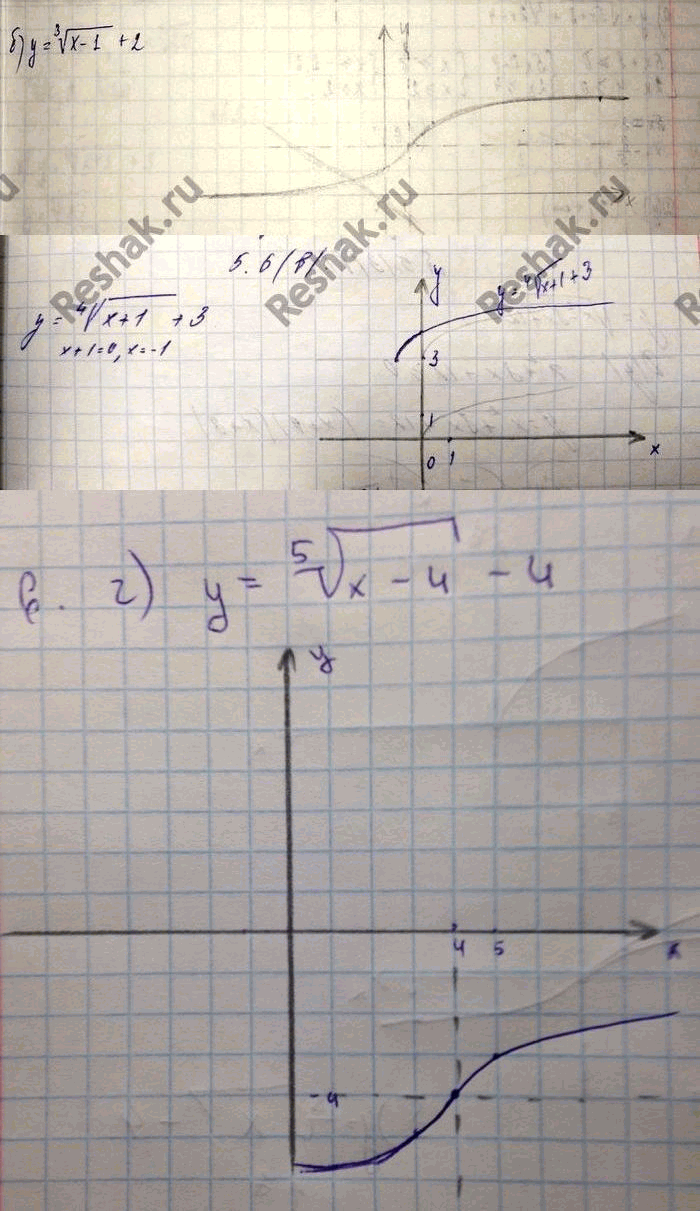 б) y = ∛(x-1) + 2
y
x
Reshak.ru
Reshak.ru
Reshak.ru
5.6(в)
y = ⁴√(x+1) + 3
x+1=0, x=-1
y
y = ⁴√(x+1) + 3
3
1
0 1
x
6. г) y = ⁵√(x-4) - 4
y
4 5
x
-4